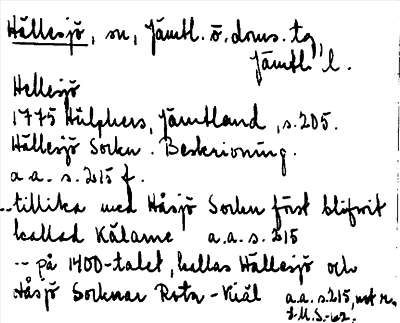 Hällesjö, sn, Jämtl. ö. doms. tg,
Jämtl. l.
Hellesjö
1775 Hülphers, Jämtland, s. 205.
Hällesjö Sockn. Beskrivning.
a.a. s. 215 f.
-- tillika med Håsjö Sockn först blifvit
kallad Kälarne a.a. s. 215
-- på 1400-talet, kallas Hällesjö och
Håsjö Socknar Rota-Kiäl a.a. s. 215, not